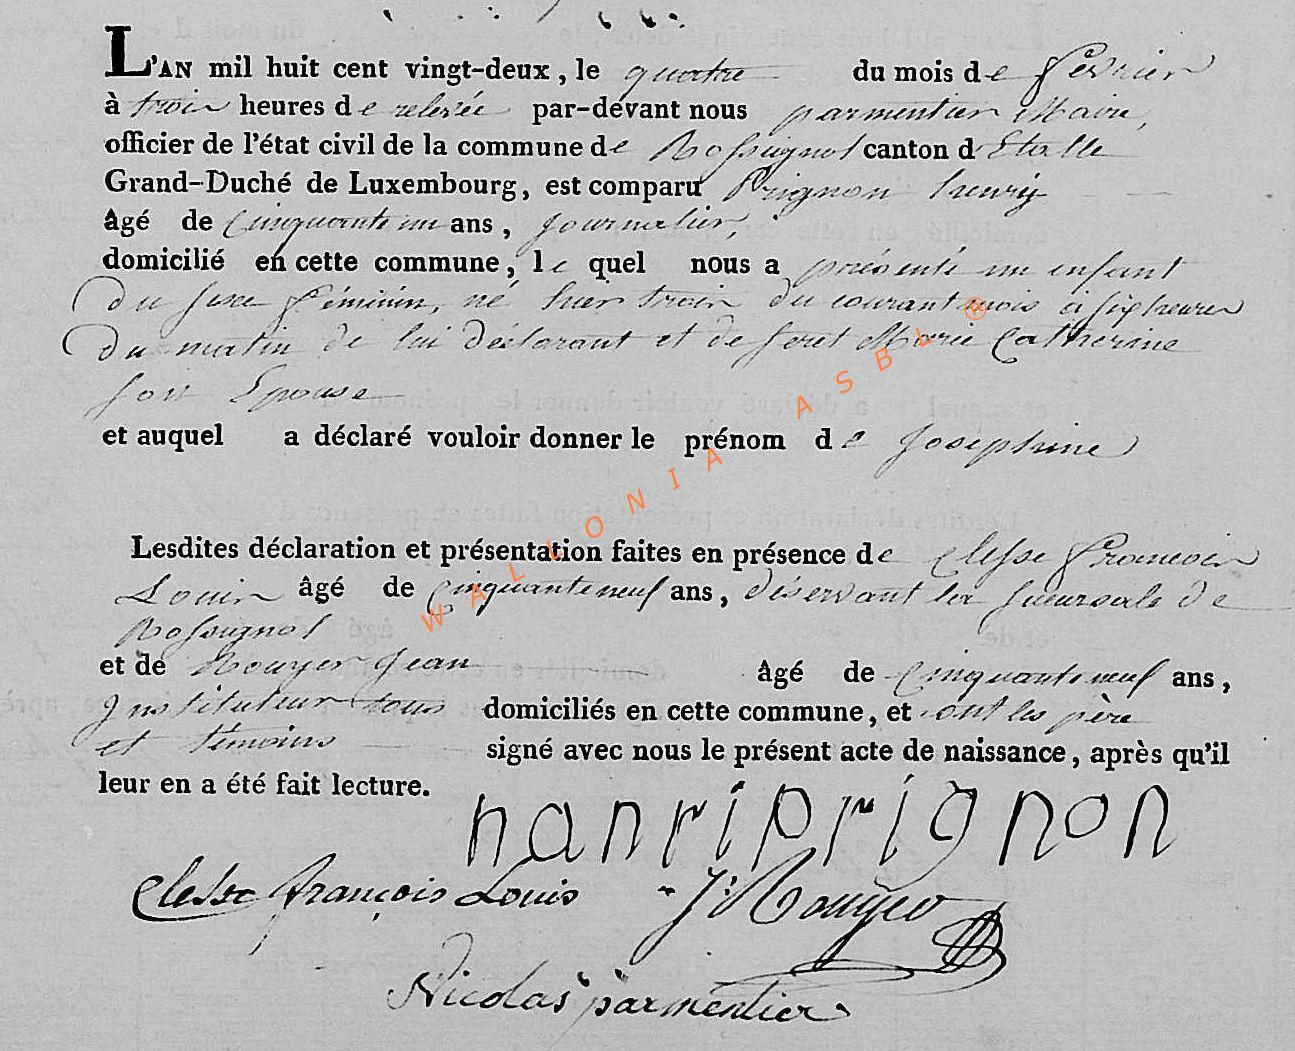 L'AN mil huit cent vingt-deux, le quatre du mois de février
à trois heures de relevée par-devant nous parmentier Maire,
officier de l'état civil de la commune de Rossignol canton d'Etalle
Grand-Duché de Luxembourg, est comparu Prignon henry
âgé de Cinquante un ans, journalier,
domicilié en cette commune, le quel nous a présenté un enfant
du sexe féminin, né hier trois du courant mois a six heures
du matin de lui déclarant et de feret Marie Catherine
son Epouse
et auquel a déclaré vouloir donner le prénom de Josephine
Lesdites déclaration et présentation faites en présence de Clesse françois
Louis âgé de Cinquante neuf ans, déservant la sucursale de
Rossignol
et de Rouyer Jean âgé de Cinquante neuf ans,
Instituteur tous domiciliés en cette commune, et ont les père
et témoins signé avec nous le présent acte de naissance, après qu'il
leur en a été fait lecture.
hanriprignon
Clesse françois Louis J: Rouyer
Nicolas parmentier
WALLONIA ASBL ®